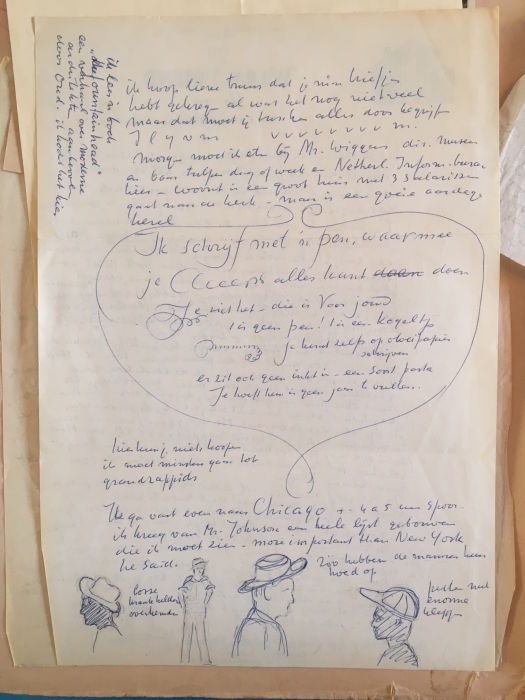 ik lees in boek
"the fountainhead"
een verhaal over moderne
architekten aanbevolen
door Oud. ik kocht het hier
ik hoop lieve truus dat je mijn briefjes
hebt gekregen al was het nog niet veel
maar dat moet jij tussen alles door begrijpen
I l y v m v v v v v v v v m.
morgen moet ik eten bij Mr. Wiggers dir. museum
en baas tulpen dag of week en Netherl. Inform. bureau
hier - woont in een groot huis met 3
gaat naar de kerk - maar is een goeie aardige
kerel
Ik schrijf met 'n pen, waarmee
je alles kunt daan doen
Je ziet het - die is voor jou
't is geen pen! 't is een kogeltje
je kunt zelfs op vloeipapier
schrijven
er zit ook geen inkt in - een soort pasta
Je hoeft hem in geen jaar te vullen..
hier kun je niets kopen
ik moet minstens gaan tot
grandrappids
Ik ga vast even naar Chicago + 4 a 5 uur spoor.
ik kreeg van Mr. Johnson een heele lijst gebouwen
die ik moet zien - more important than New York
he said.
zoo hebben de mannen hun
hoed op
losse
overhemden
petten met
enorme
kleppen